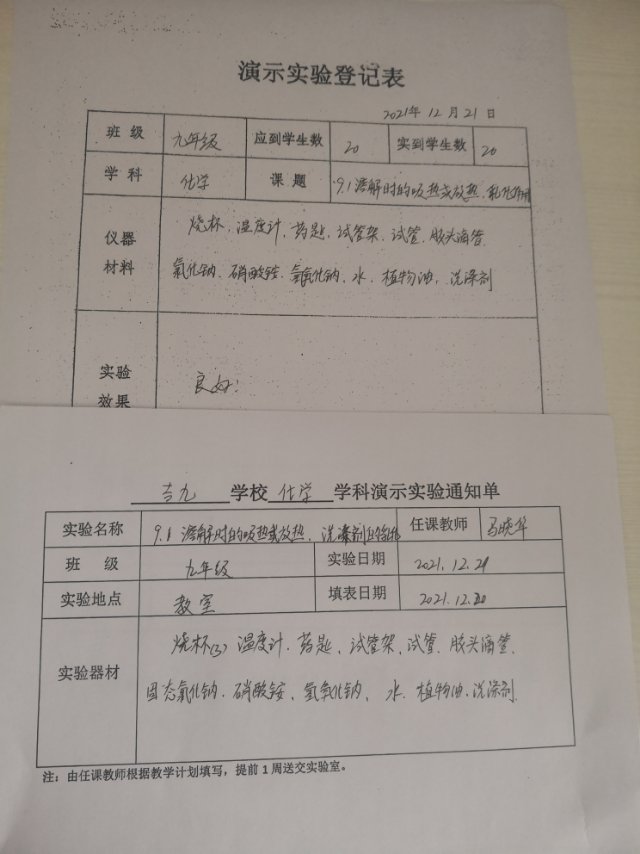 演示实验登记表
2021年 12 月 21 日
班 级 九年级 应到学生数 20 实到学生数 20
学 科 化学 课 题 9.1溶解时的吸热或放热、乳化作用
仪器 烧杯、温度计、药匙、试管架、试管、胶头滴管
材料 氯化钠、硝酸铵、氢氧化钠、水、植物油、洗涤剂
实验 良好!
效果
吉九 学校 化学 学科演示实验通知单
实验名称 9.1 溶解时的吸热或放热、洗涤剂 任课教师 马晓华
班 级 九年级 实验日期 2021.12.21
实验地点 教室 填表日期 2021.12.20
烧杯(3) 温度计、药匙、试管架、试管、胶头滴管、
实验器材 固态氯化钠、硝酸铵、氢氧化钠、水、植物油、洗涤剂
注：由任课教师根据教学计划填写，提前1周送交实验室。